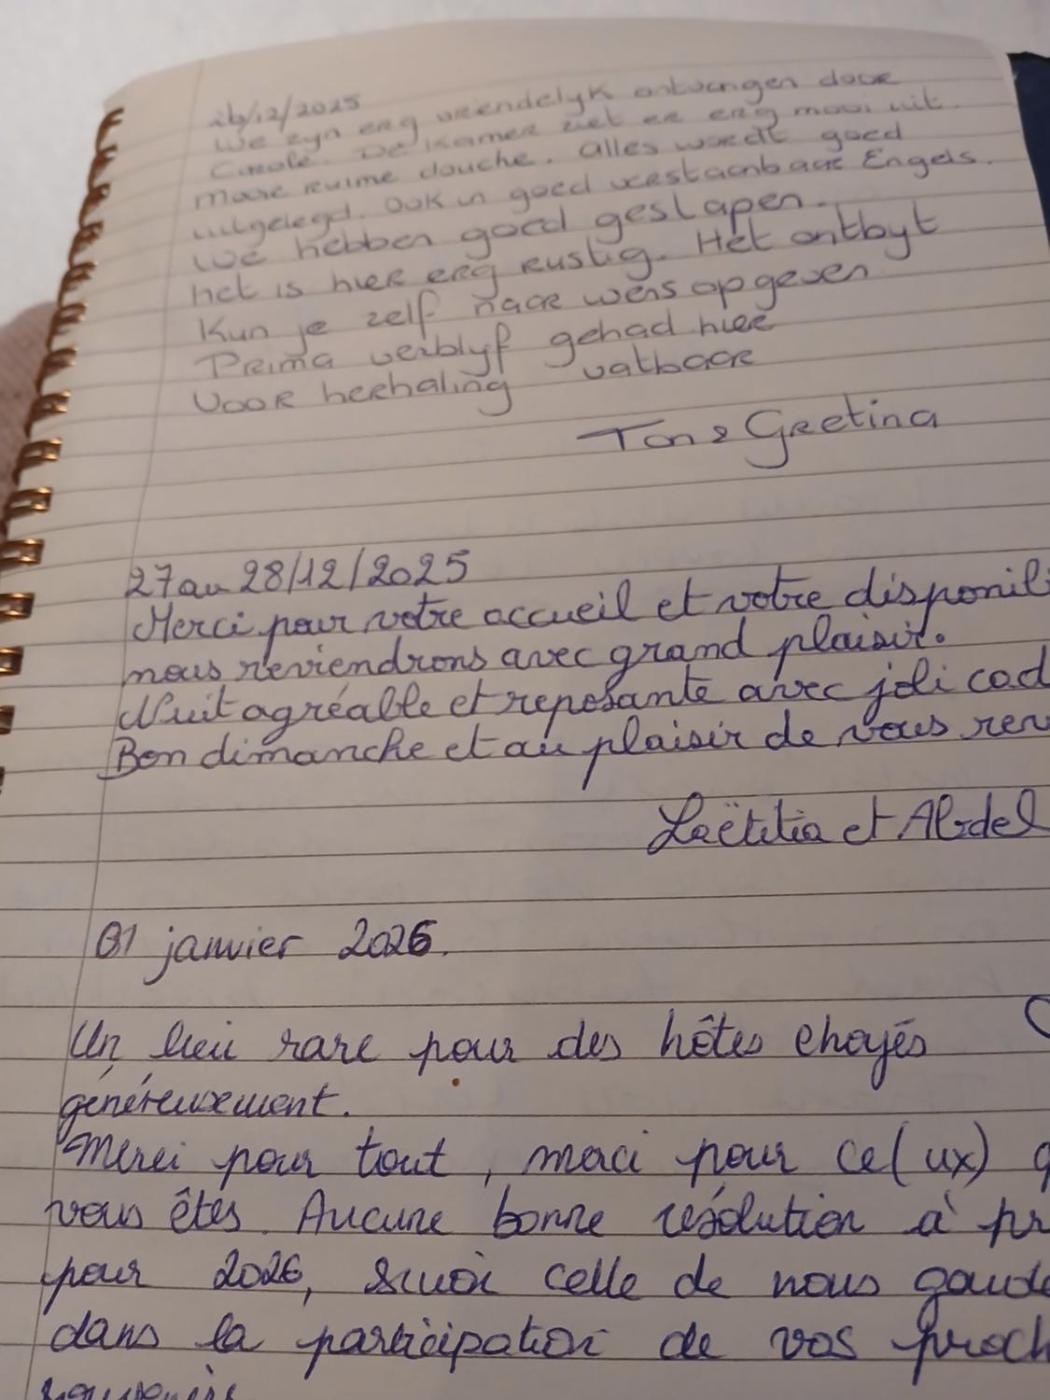 26/12/2025
We zyn erg vriendelyk ontvangen door
Carole. De kamer ziet er erg mooi uit
mooie ruime douche. Alles wordt goed
uitgelegd. Ook in goed verstaanbaar Engels.
We hebben goed geslapen.
het is hier erg rustig. Het ontbyt
Kun je zelf naar wens opgeven
Prima verblyf gehad hier
Voor herhaling vatbaar
Ton & Greetina
27 au 28/12/2025
Merci pour votre accueil et votre disponili
nous reviendrons avec grand plaisir.
Nuit agréable et reposante avec joli cad
Bon dimanche et au plaisir de vous rev
Laëtitia et Abdel
01 janvier 2026.
Un lieu rare pour des hôtes choyés
généreusement.
Merci pour tout, merci pour ce(ux) q
vous êtes. Aucune bonne résolution à pr
pour 2026, sinon celle de nous garde
dans la participation de vos proch